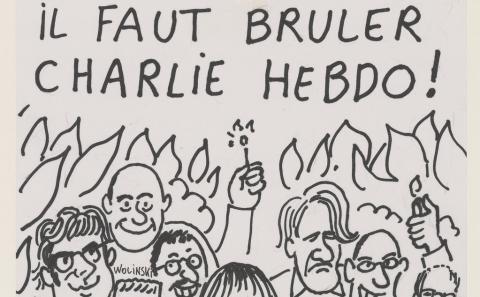 iL FAUT BRULER
CHARLiE HEBDO!
WOLiNSKi